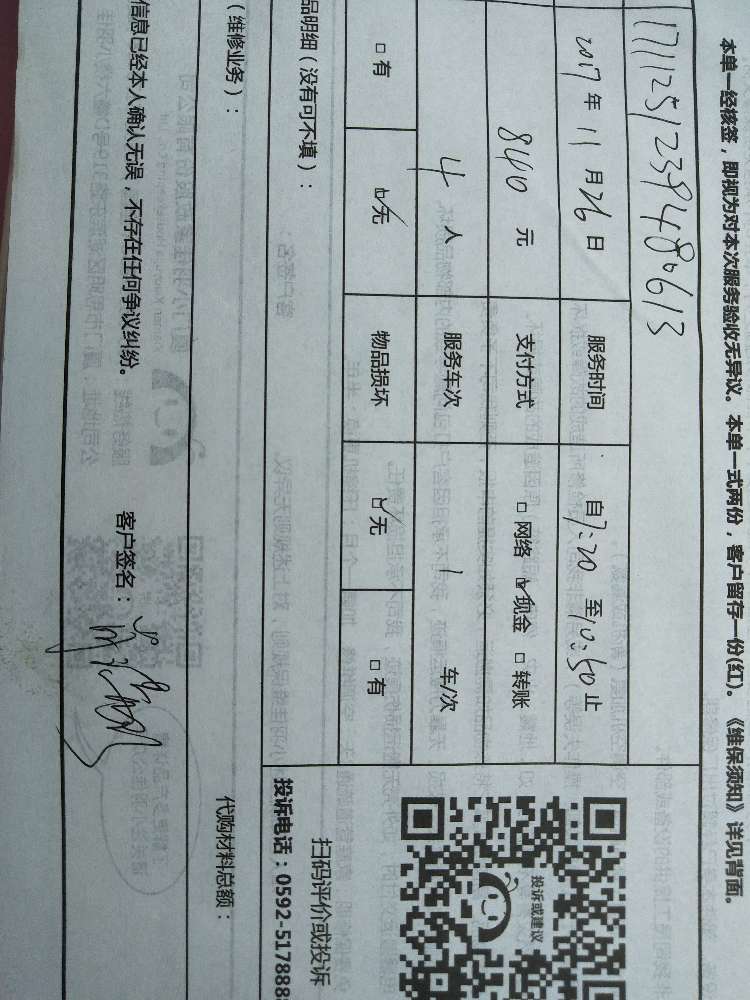 本单一经核签，即视为对本次服务验收无异议。本单一式两份，客户留存一份(红)。《维保须知》详见背面。
2017年11月26日 服务时间 自7:20至10:50止
840元 支付方式 □网络 ☑现金 □转账
4人 服务车次 1 车/次
□有 ☑无 物品损坏 ☑无 □有
投诉或建议
扫码评价或投诉
投诉电话：0592-5178888
品明细（没有可不填）：
（维修业务）： 代购材料总额：
信息已经本人确认无误，不存在任何争议纠纷。 客户签名：